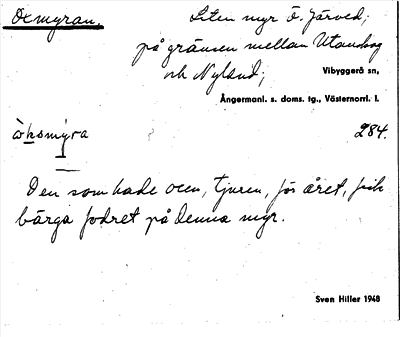 Oxmyran.
Liten myr Ö. Järved;
på gränsen mellan Utanskog
och Nyland;
Vibyggerå sn,
Ångermanl. s. doms. tg., Västernorrl. l.
òksomýra
284.
Den som hade oxen, tjuren, för året, fick
bärga fodret på denna myr.
Sven Hiller 1948